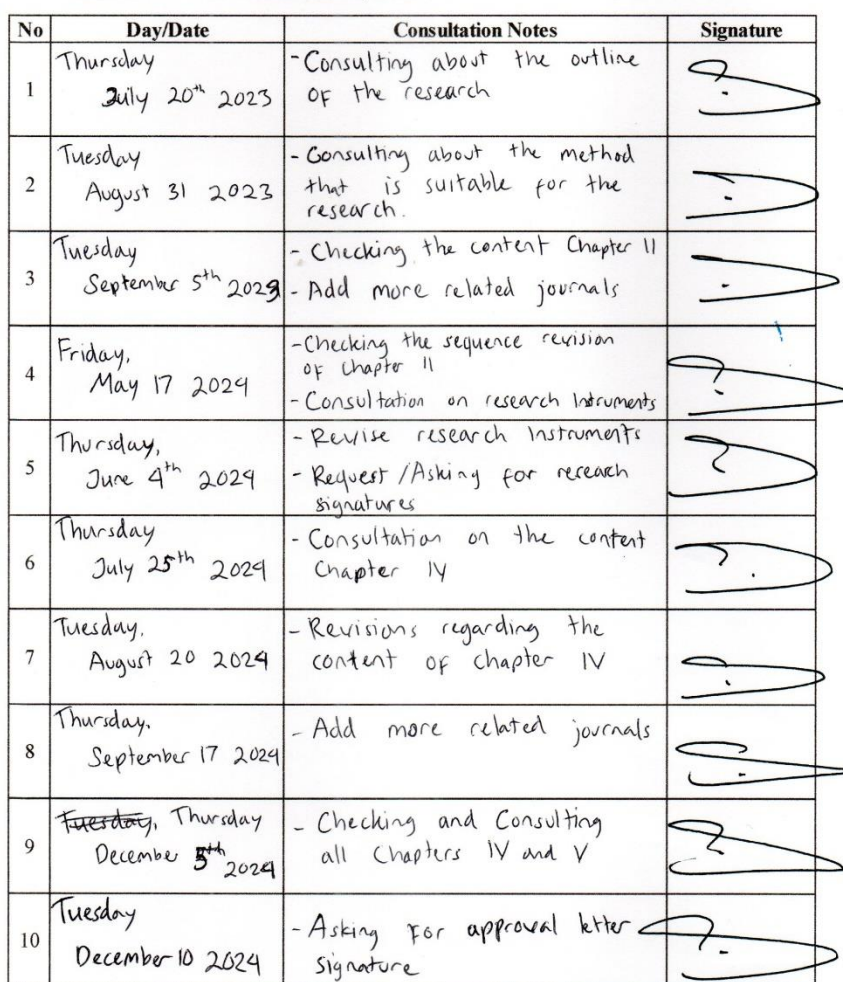 No Day/Date Consultation Notes Signature
1 Thursday
July 20th 2023
- Consulting about the outline
of the research
2 Tuesday
August 31 2023
- Consulting about the method
that is suitable for the
research.
3 Tuesday
September 5th 2023
- Checking the content Chapter II
- Add more related journals
4 Friday,
May 17 2024
- Checking the sequence revision
of Chapter II
- Consultation on research Intruments
5 Thursday,
June 4th 2024
- Revise research Instruments
- Request/Asking for reseach
signatures
6 Thursday
July 25th 2024
- Consultation on the content
Chapter IV
7 Tuesday,
August 20 2024
- Revisions regarding the
content of chapter IV
8 Thursday.
September 17 2024
- Add more related journals
9 Tuesday, Thursday
December 5th 2024
- Checking and Consulting
all Chapters IV and V
10 Tuesday
December 10 2024
- Asking for approval letter
signature